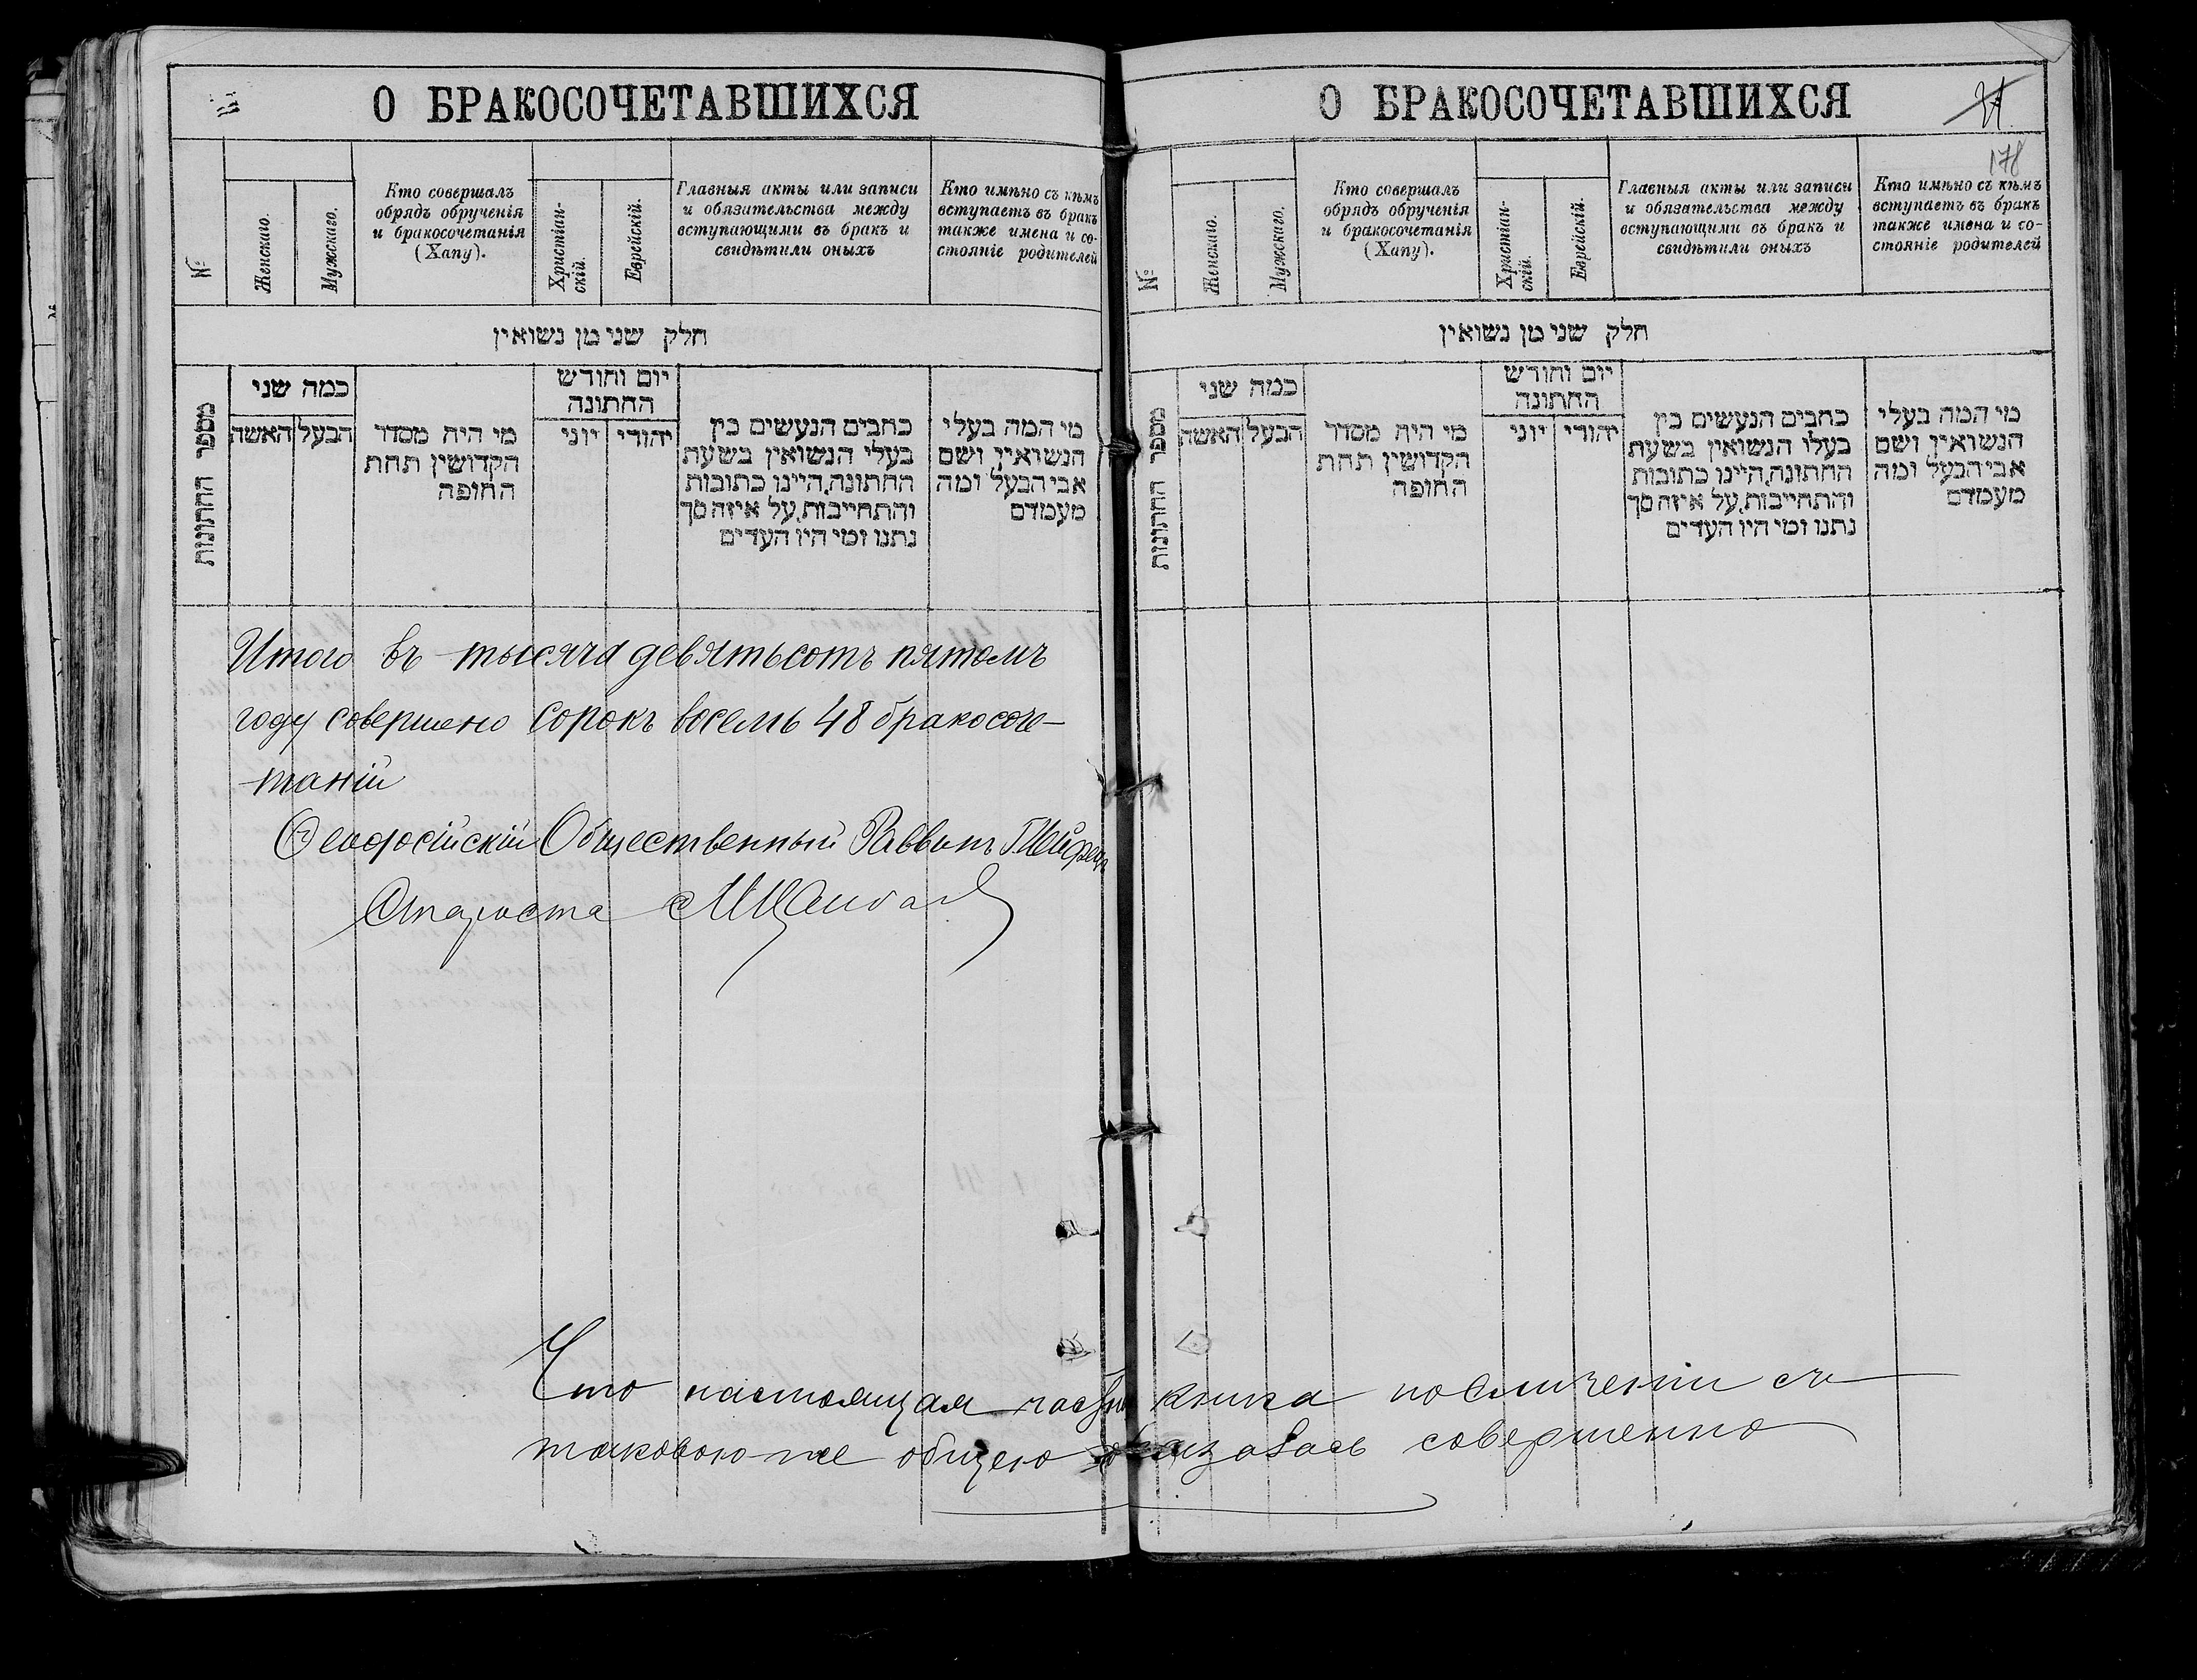 О БРАКОСОЧЕТАВШИХСЯ
№
Женскаго.
Мужскаго.
Кто совершалъ
обрядъ обрученія
и бракосочетанія
(Хапу).
Христіан-
скій.
Еврейскій.
Главныя акты или записи
и обязательства между
вступающими въ бракъ и
свидѣтили оныхъ
Кто имѣно съ кѣмъ
вступаетъ въ бракъ
также имена и со-
стояніе родителей
חלק שני מן נשואין
מספר החתונות
כמה שני
הבעל
האשה
מי היה מסדר
הקדושין תחת
החופה
יום וחודש
החתונה
יהודי
יוני
כתבים הנעשים בין
בעלי הנשואין בשעת
החתונה,היינו כתובות
והתחייבות,על איזה סך
נתנו ומי היו העדים
מי המה בעלי
הנשואין ושם
אבי הבעל ומה
מעמדם
Итого въ тысяча девятьсотъ пятомъ
году совершено сорокъ восемь 48 бракосоче-
таній
Ѳеодосійскій Общественный Раввинъ
Староста
О БРАКОСОЧЕТАВШИХСЯ
178
№
Женскаго.
Мужскаго.
Кто совершалъ
обрядъ обрученія
и бракосочетанія
(Хапу).
Христіан-
скій.
Еврейскій.
Главныя акты или записи
и обязательства между
вступающими въ бракъ и
свидѣтили оныхъ
Кто имѣно съ кѣмъ
вступаетъ въ бракъ
также имена и со-
стояніе родителей
חלק שני מן נשואין
מספר החתונות
כמה שני
הבעל
האשה
מי היה מסדר
הקדושין תחת
החופה
יום וחודש
החתונה
יהודי
יוני
כתבים הנעשים בין
בעלו הנשואין בשעת
החתונה,היינו כתובות
והתחייבות,על איזה סך
נתנו ומי היו העדים
מי המה בעלי
הנשואין ושם
אבי הבעל ומה
מעמדם
Что настоящая книга по сличеніи съ
таковою-же общею оказалась совершенно